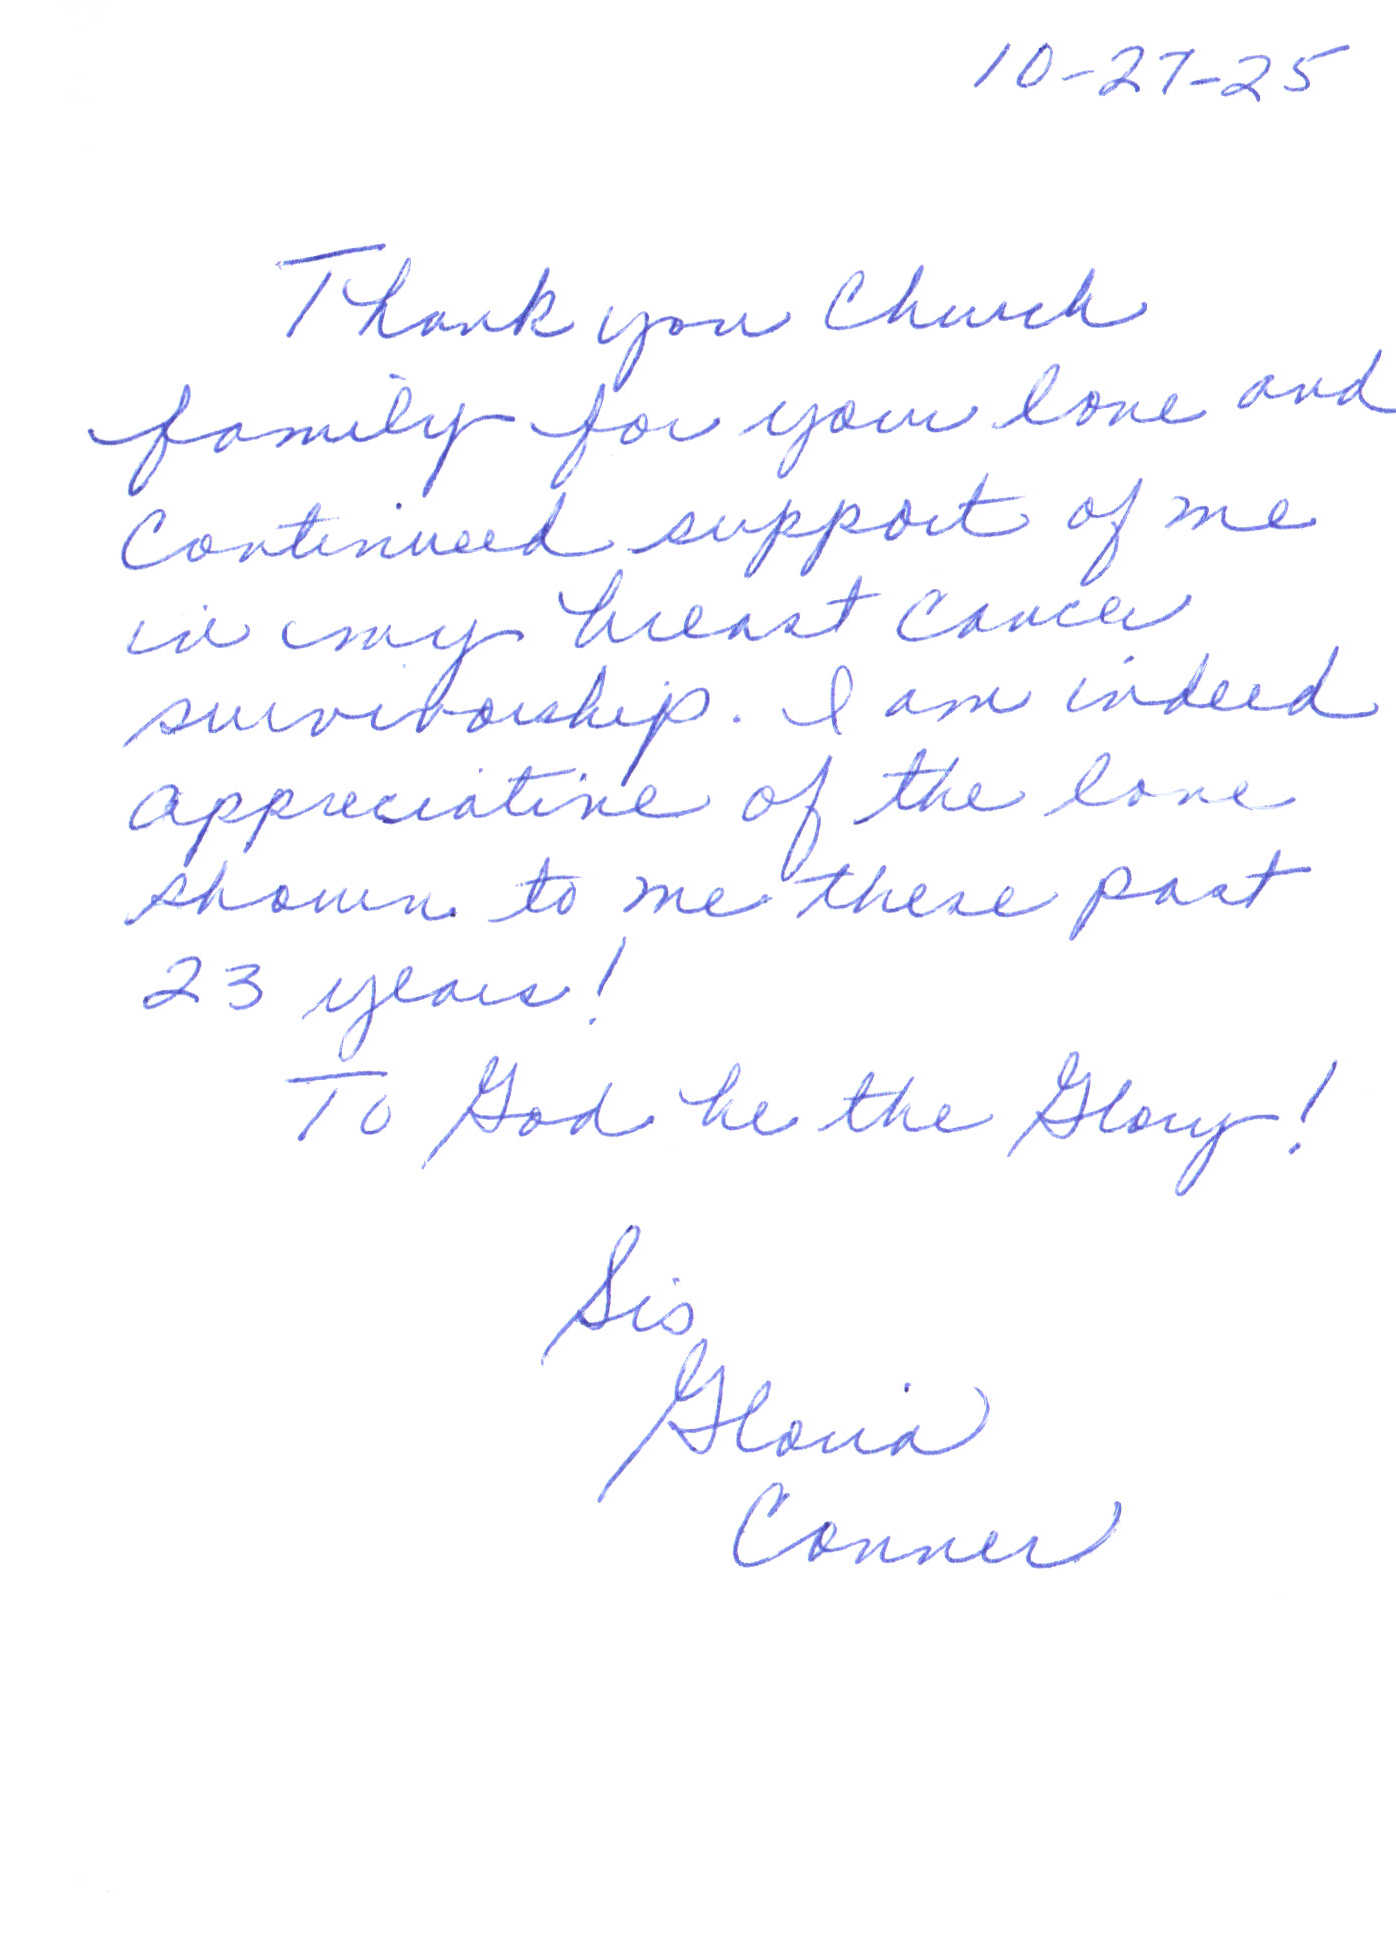 10-27-25
Thank you Church
family for your love and
Continued support of me
in my breast cancer
survivorship. I am indeed
appreciative of the love
shown to me these past
23 years!
To God be the Glory!
Sis
Gloria
Conner